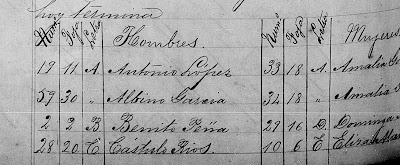 hoy termina
Num. Foja Letra Hombres. Num. Foja Letra Mujeres
19 11 A. Antonio López 33 18 A. Amalia
59 30 " Albino Garcia 34 18 " Amalia
2 2 B Benito Peña 29 16 D. Doming
28 20 C. Castulo Rios. 10 6 E. Eliza